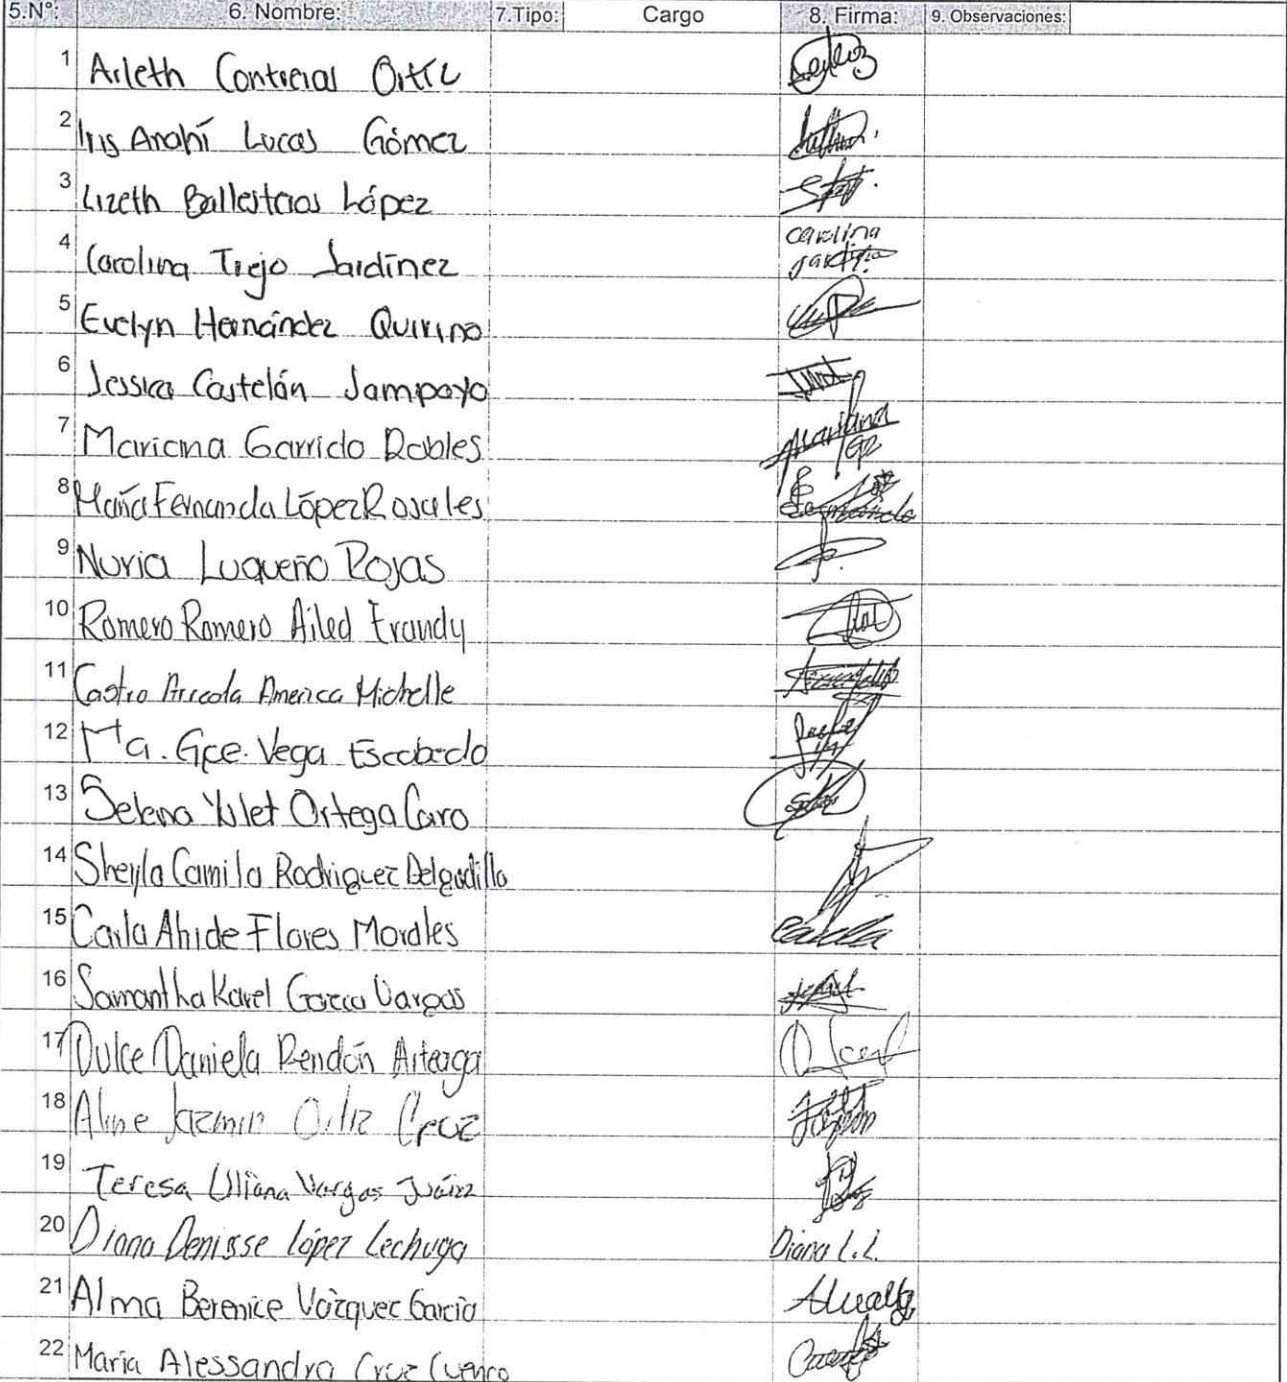 5.N°: 6. Nombre: 7.Tipo: Cargo 8. Firma: 9. Observaciones:
1 Arleth Contreras Ortíz
2 Iris Anahí Lucas Gómez
3 Lizeth Ballesteros López
4 Carolina Trejo Jardínez carolina
5 Evelyn Hernández Quirino
6 Jessica Castelán Sampayo
7 Mariana Garrido Robles Mariana
8 María Fernanda López Rosales
9 Nuria Luqueño Rojas
10 Romero Romero Ailed Erandy
11 Castro Arreola America Michelle
12 Ma. Gpe. Vega Escobedo
13 Selena Yulet Ortega Caro
14 Sheyla Camila Rodriguez Delgadillo
15 Carla Ahide Flores Morales
16 Samantha Karel Garcia Vargas
17 Dulce Daniela Rendón Arteaga
18 Aline Jazmin Ortiz Cruz
19 Teresa Liliana Vargas Juárez
20 Diana Denisse López Lechuga Diana L.L.
21 Alma Berenice Vázquez García
22 Maria Alessandra Cruz Cuenca